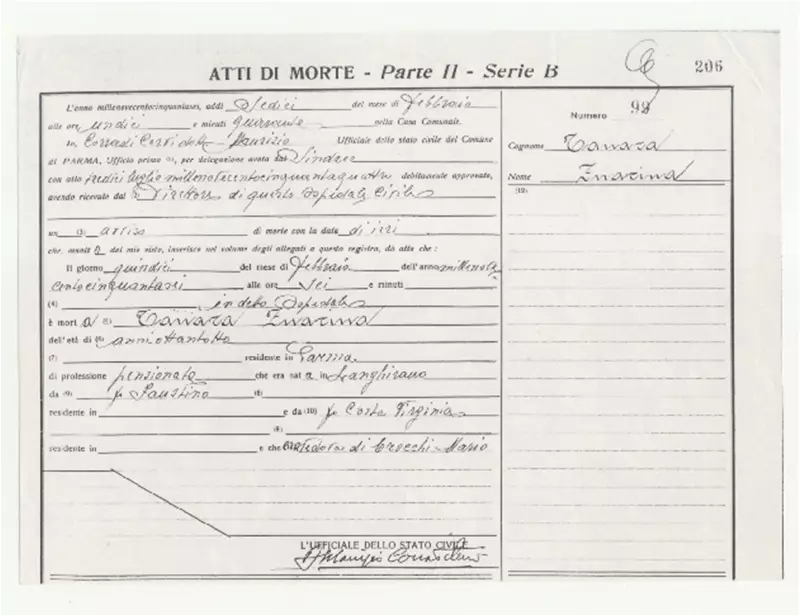 206
ATTI DI MORTE - Parte II - Serie B
L'anno millenovecentocinquantasei, addì Sedici del mese di febbraio
alle ore undici e minuti quaranta nella Casa Comunale.
Io, Corradi Cervi dott. Maurizio Ufficiale dello stato civile del Comune
di PARMA, Ufficio primo per delegazione avuta dal Sindaco
con atto tredici luglio millenovecentocinquantaquattro debitamente approvato,
avendo ricevuto dal Direttore di questo Ospedale Civile
un (3) avviso di morte con la data di ieri
che, munito del mio visto, inserisco nel volume degli allegati a questo registro, dò atto che:
Il giorno quindici del mese di febbraio dell'anno millenove
centocinquantasei alle ore sei e minuti
(4) in detto Ospedale
è mort a (5) Tanara Zuarina
dell'età di (6) anni ottantotto
(7) residente in Parma
di professione pensionata che era nat a in Langhirano
da (9) fu Faustino (8)
residente in e da (10) fu Costa Virginia
(8)
residente in e che era vedova di Crocchi Mario
L'UFFICIALE DELLO STATO CIVILE
Numero 99
Cognome Tanara
Nome Zuarina
(12)